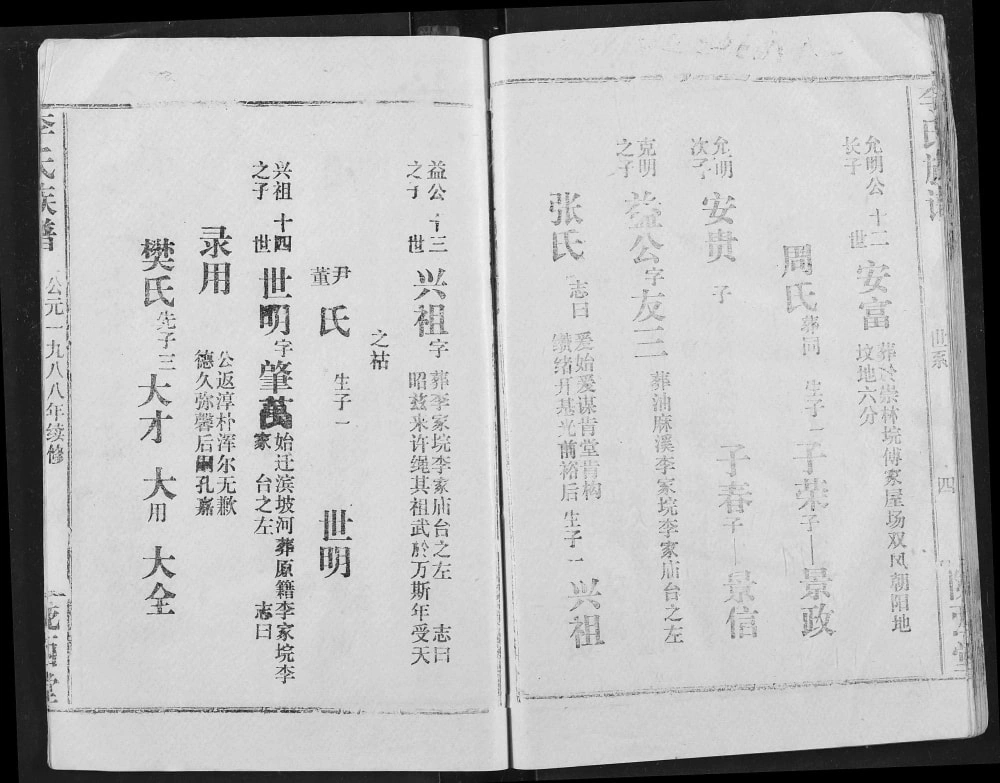 李氏族谱
世系
四
陇西堂
允明公长子
十二世
安富
葬冷崇林垸傅家屋场双凤朝阳地
坟地六分
周氏
葬同
生子一
子荣
子一
景政
允明次子
安贵
子
子春
子一
景信
克明之子
益公
字
友三
葬油麻溪李家垸李家庙台之左
张氏
志曰
爰始爰谋肯堂肯构
缵绪开基光前裕后
生子一
兴祖
益公之子
十三世
兴祖
字
葬李家垸李家庙台之左
志曰
昭兹来许绳其祖武於万斯年受天
之祜
尹董氏
生子一
世明
兴祖之子
十四世
世明
字
肇萬
始迁滨坡河葬原籍李家垸李
家庙台之左
志曰
录用
公返淳朴浑尔无歉
德久弥馨后嗣孔嘉
樊氏
先子三
大才
大用
大全
李氏族谱
公元一九八八年续修
陇西堂